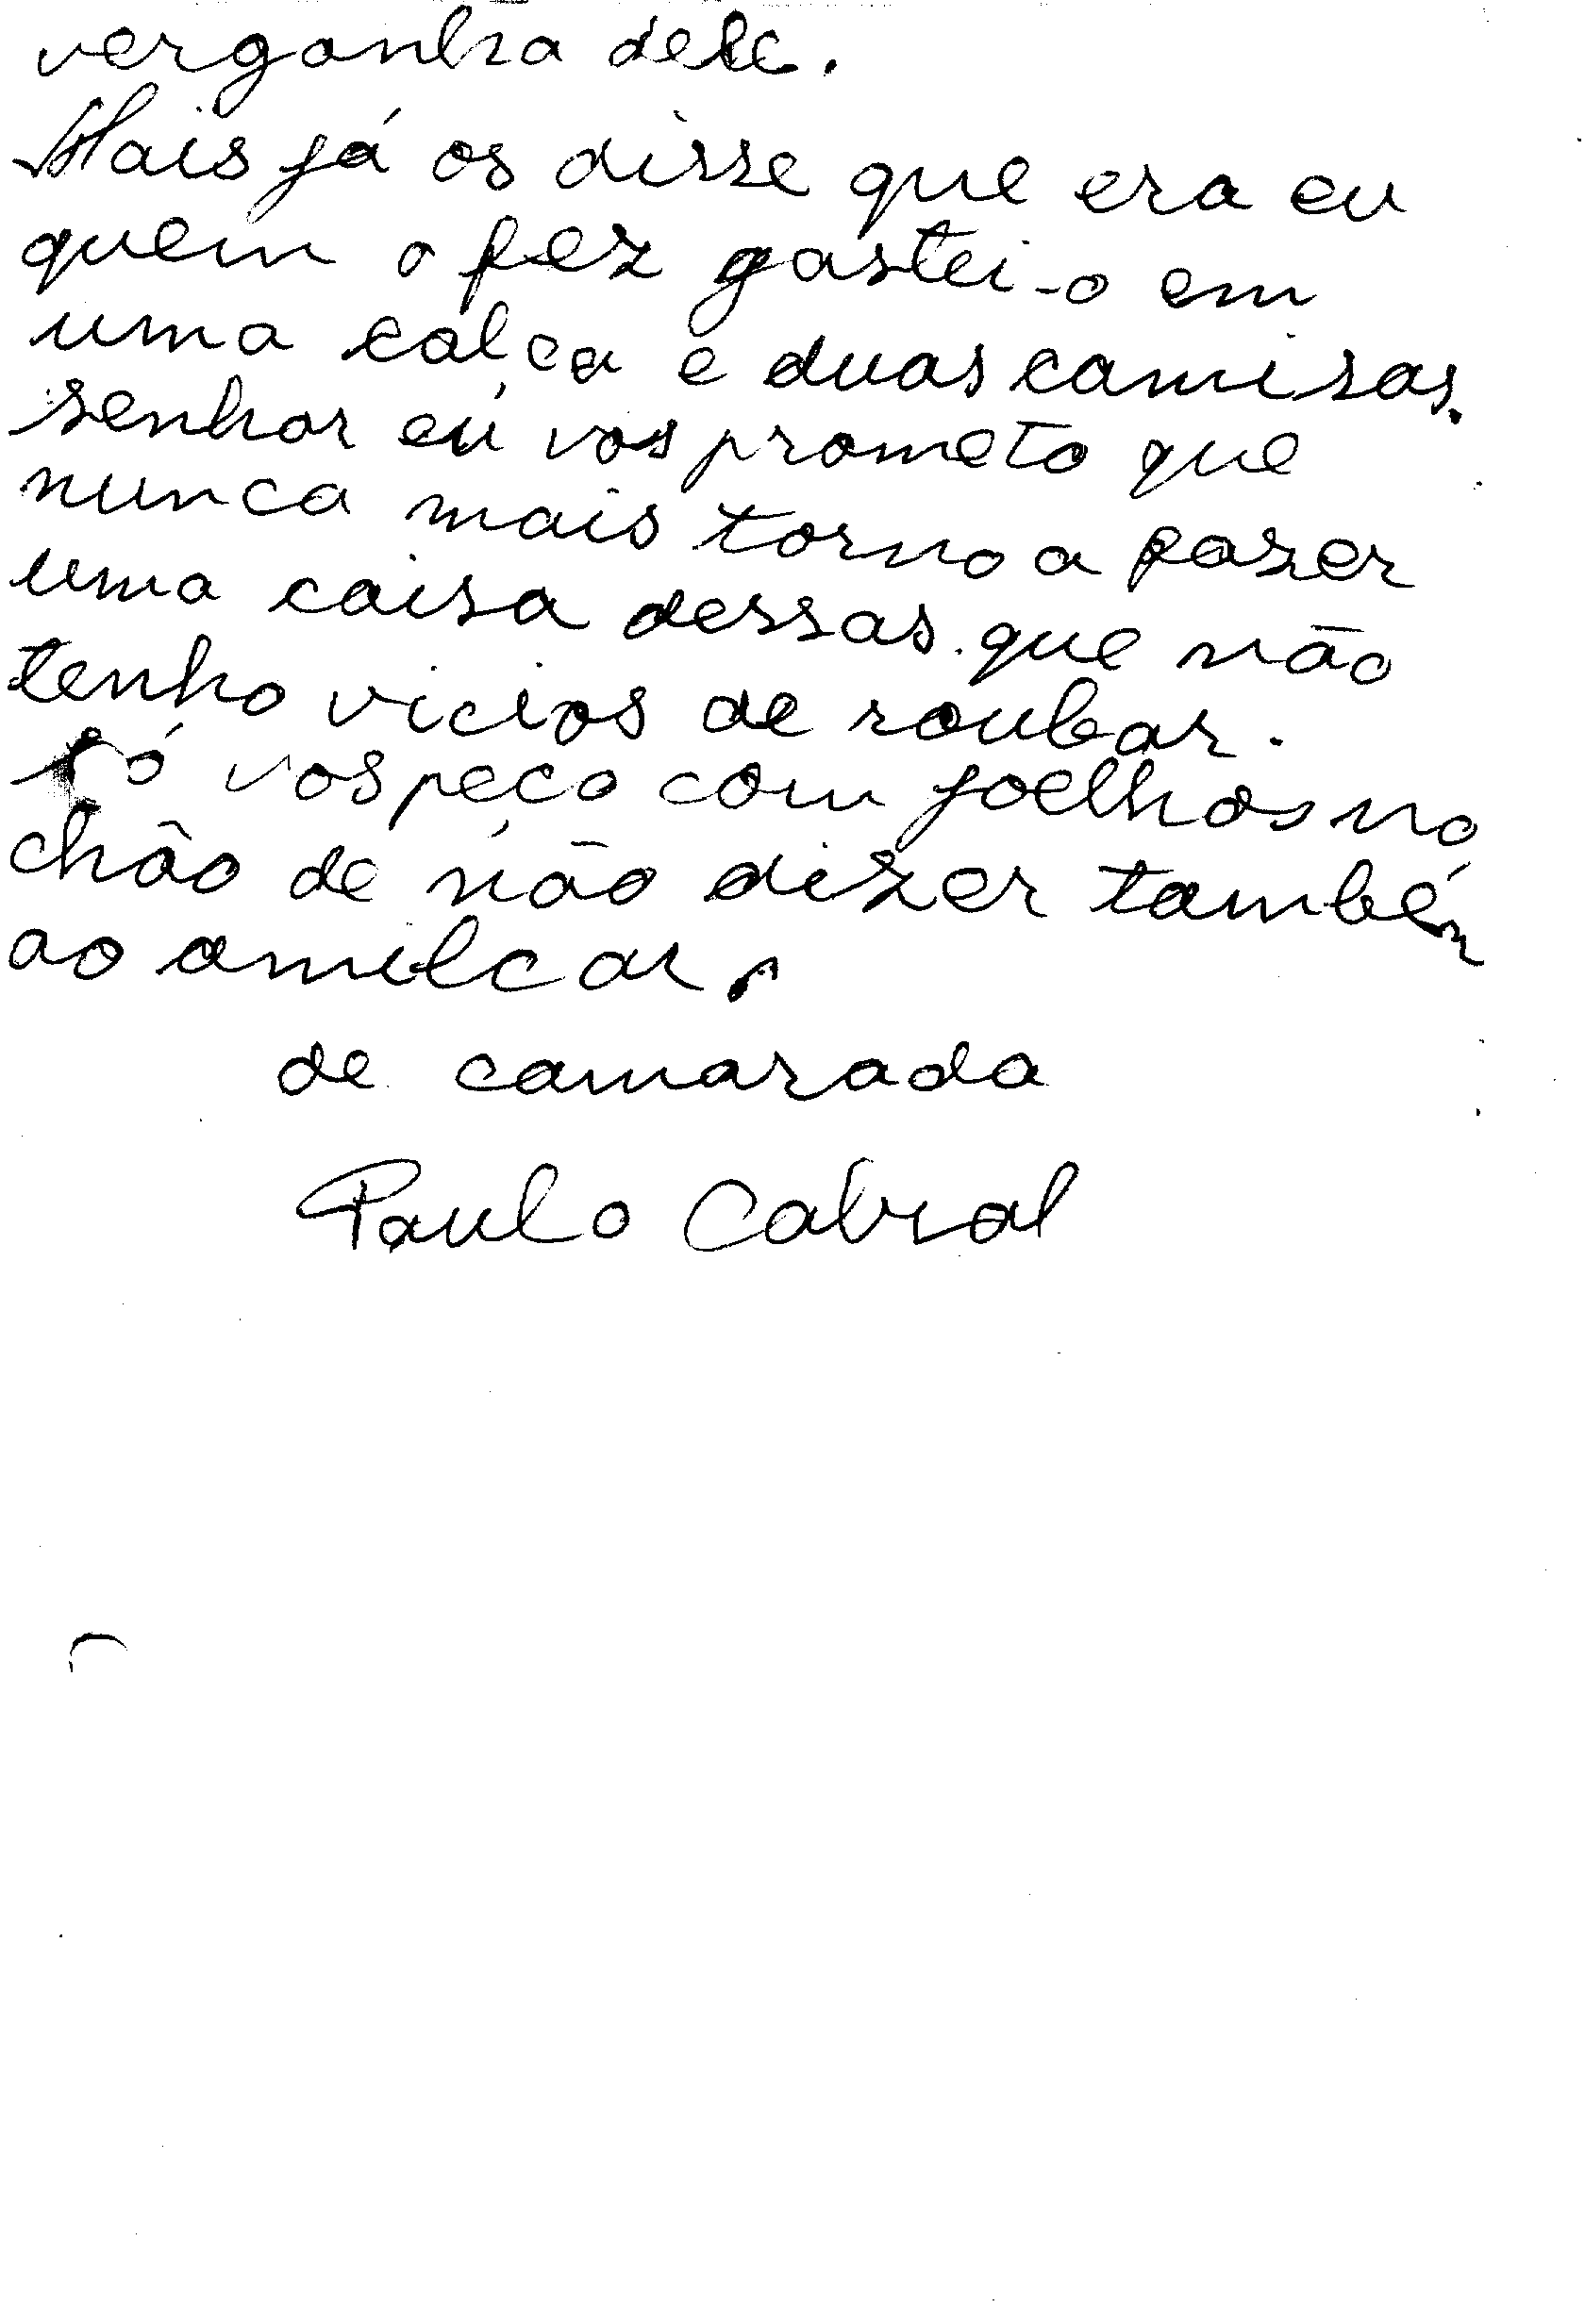 vergonha dele.
Mais já os disse que era eu
quem o fez gastei-o em
uma calca e duas camisas.
senhor eu vos prometo que
nunca mais torno a fazer
uma coisa dessas. que não
tenho vicios de roubar.
só vos peco com joelhos no
chão de não dizer também
ao amilcar.
de camarada
Paulo Cabral